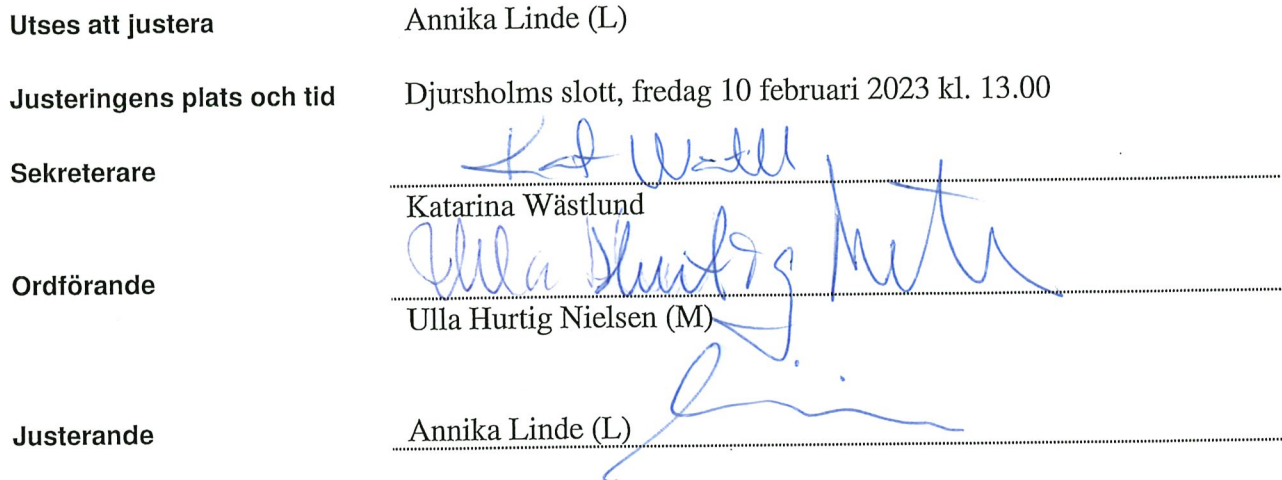 Utses att justera Annika Linde (L)
Justeringens plats och tid Djursholms slott, fredag 10 februari 2023 kl. 13.00
Sekreterare
Katarina Wästlund
Ulla Hurtig
Ordförande
Ulla Hurtig Nielsen (M)
Justerande Annika Linde (L)